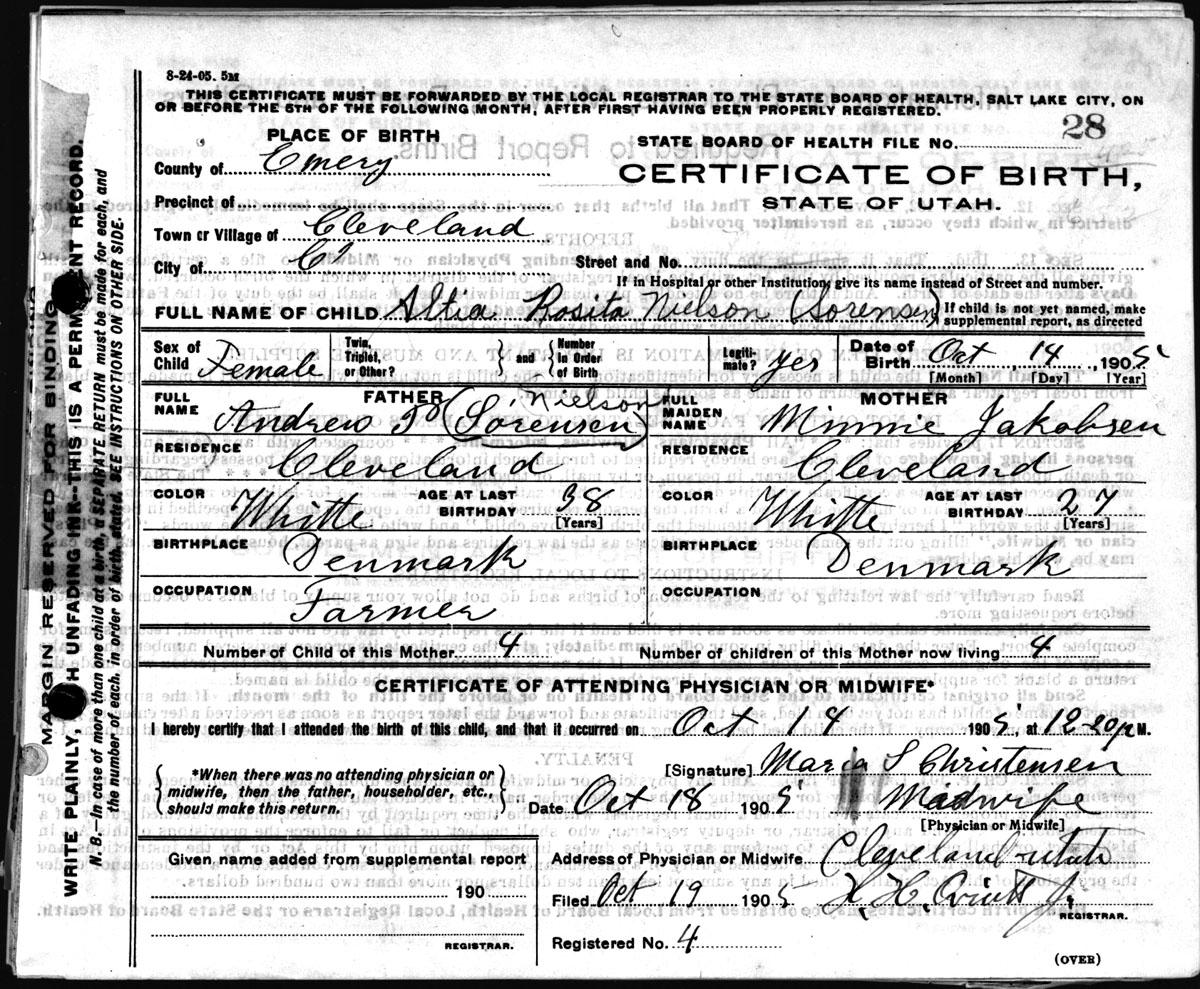 8-24-05. 5M
THIS CERTIFICATE MUST BE FORWARDED BY THE LOCAL REGISTRAR TO THE STATE BOARD OF HEALTH, SALT LAKE CITY, ON
OR BEFORE THE 5TH OF THE FOLLOWING MONTH, AFTER FIRST HAVING BEEN PROPERLY REGISTERED.
PLACE OF BIRTH
STATE BOARD OF HEALTH FILE No. 28
County of Emery
CERTIFICATE OF BIRTH,
STATE OF UTAH.
Precinct of
Town or Village of Cleveland
City of
Street and No.
If in Hospital or other Institution, give its name instead of Street and number.
FULL NAME OF CHILD Altia Rosita Nielson (Sorensen) If child is not yet named, make
supplemental report, as directed
Sex of Child Female
Twin, Triplet, or Other? and Number in Order of Birth
Legiti-mate? yes
Date of Birth Oct 14, 1905
[Month] [Day] [Year]
FATHER
MOTHER
FULL NAME Andrew P (Sorensen) Nielson
FULL MAIDEN NAME Minnie Jakobsen
RESIDENCE Cleveland
RESIDENCE Cleveland
COLOR Whitte AGE AT LAST BIRTHDAY 38 [Years]
COLOR Whitte AGE AT LAST BIRTHDAY 27 [Years]
BIRTHPLACE Denmark
BIRTHPLACE Denmark
OCCUPATION Farmer
OCCUPATION
Number of Child of this Mother 4
Number of children of this Mother now living 4
CERTIFICATE OF ATTENDING PHYSICIAN OR MIDWIFE*
I hereby certify that I attended the birth of this child, and that it occurred on Oct 14 1905, at 12-20 p M.
*When there was no attending physician or
midwife, then the father, householder, etc.,
should make this return.
[Signature] Maria S Christensen
Date Oct 18 1905 Midwife
[Physician or Midwife]
Given name added from supplemental report
190
REGISTRAR.
Address of Physician or Midwife Cleveland Utah
Filed Oct 19 1905 H. H. Oviatt Jr.
REGISTRAR.
Registered No. 4
(OVER)
MARGIN RESERVED FOR BINDING
WRITE PLAINLY, WITH UNFADING INK--THIS IS A PERMANENT RECORD.
N. B.—In case of more than one child at a birth, a SEPARATE RETURN must be made for each, and
the number of each, in order of birth, stated. SEE INSTRUCTIONS ON OTHER SIDE.